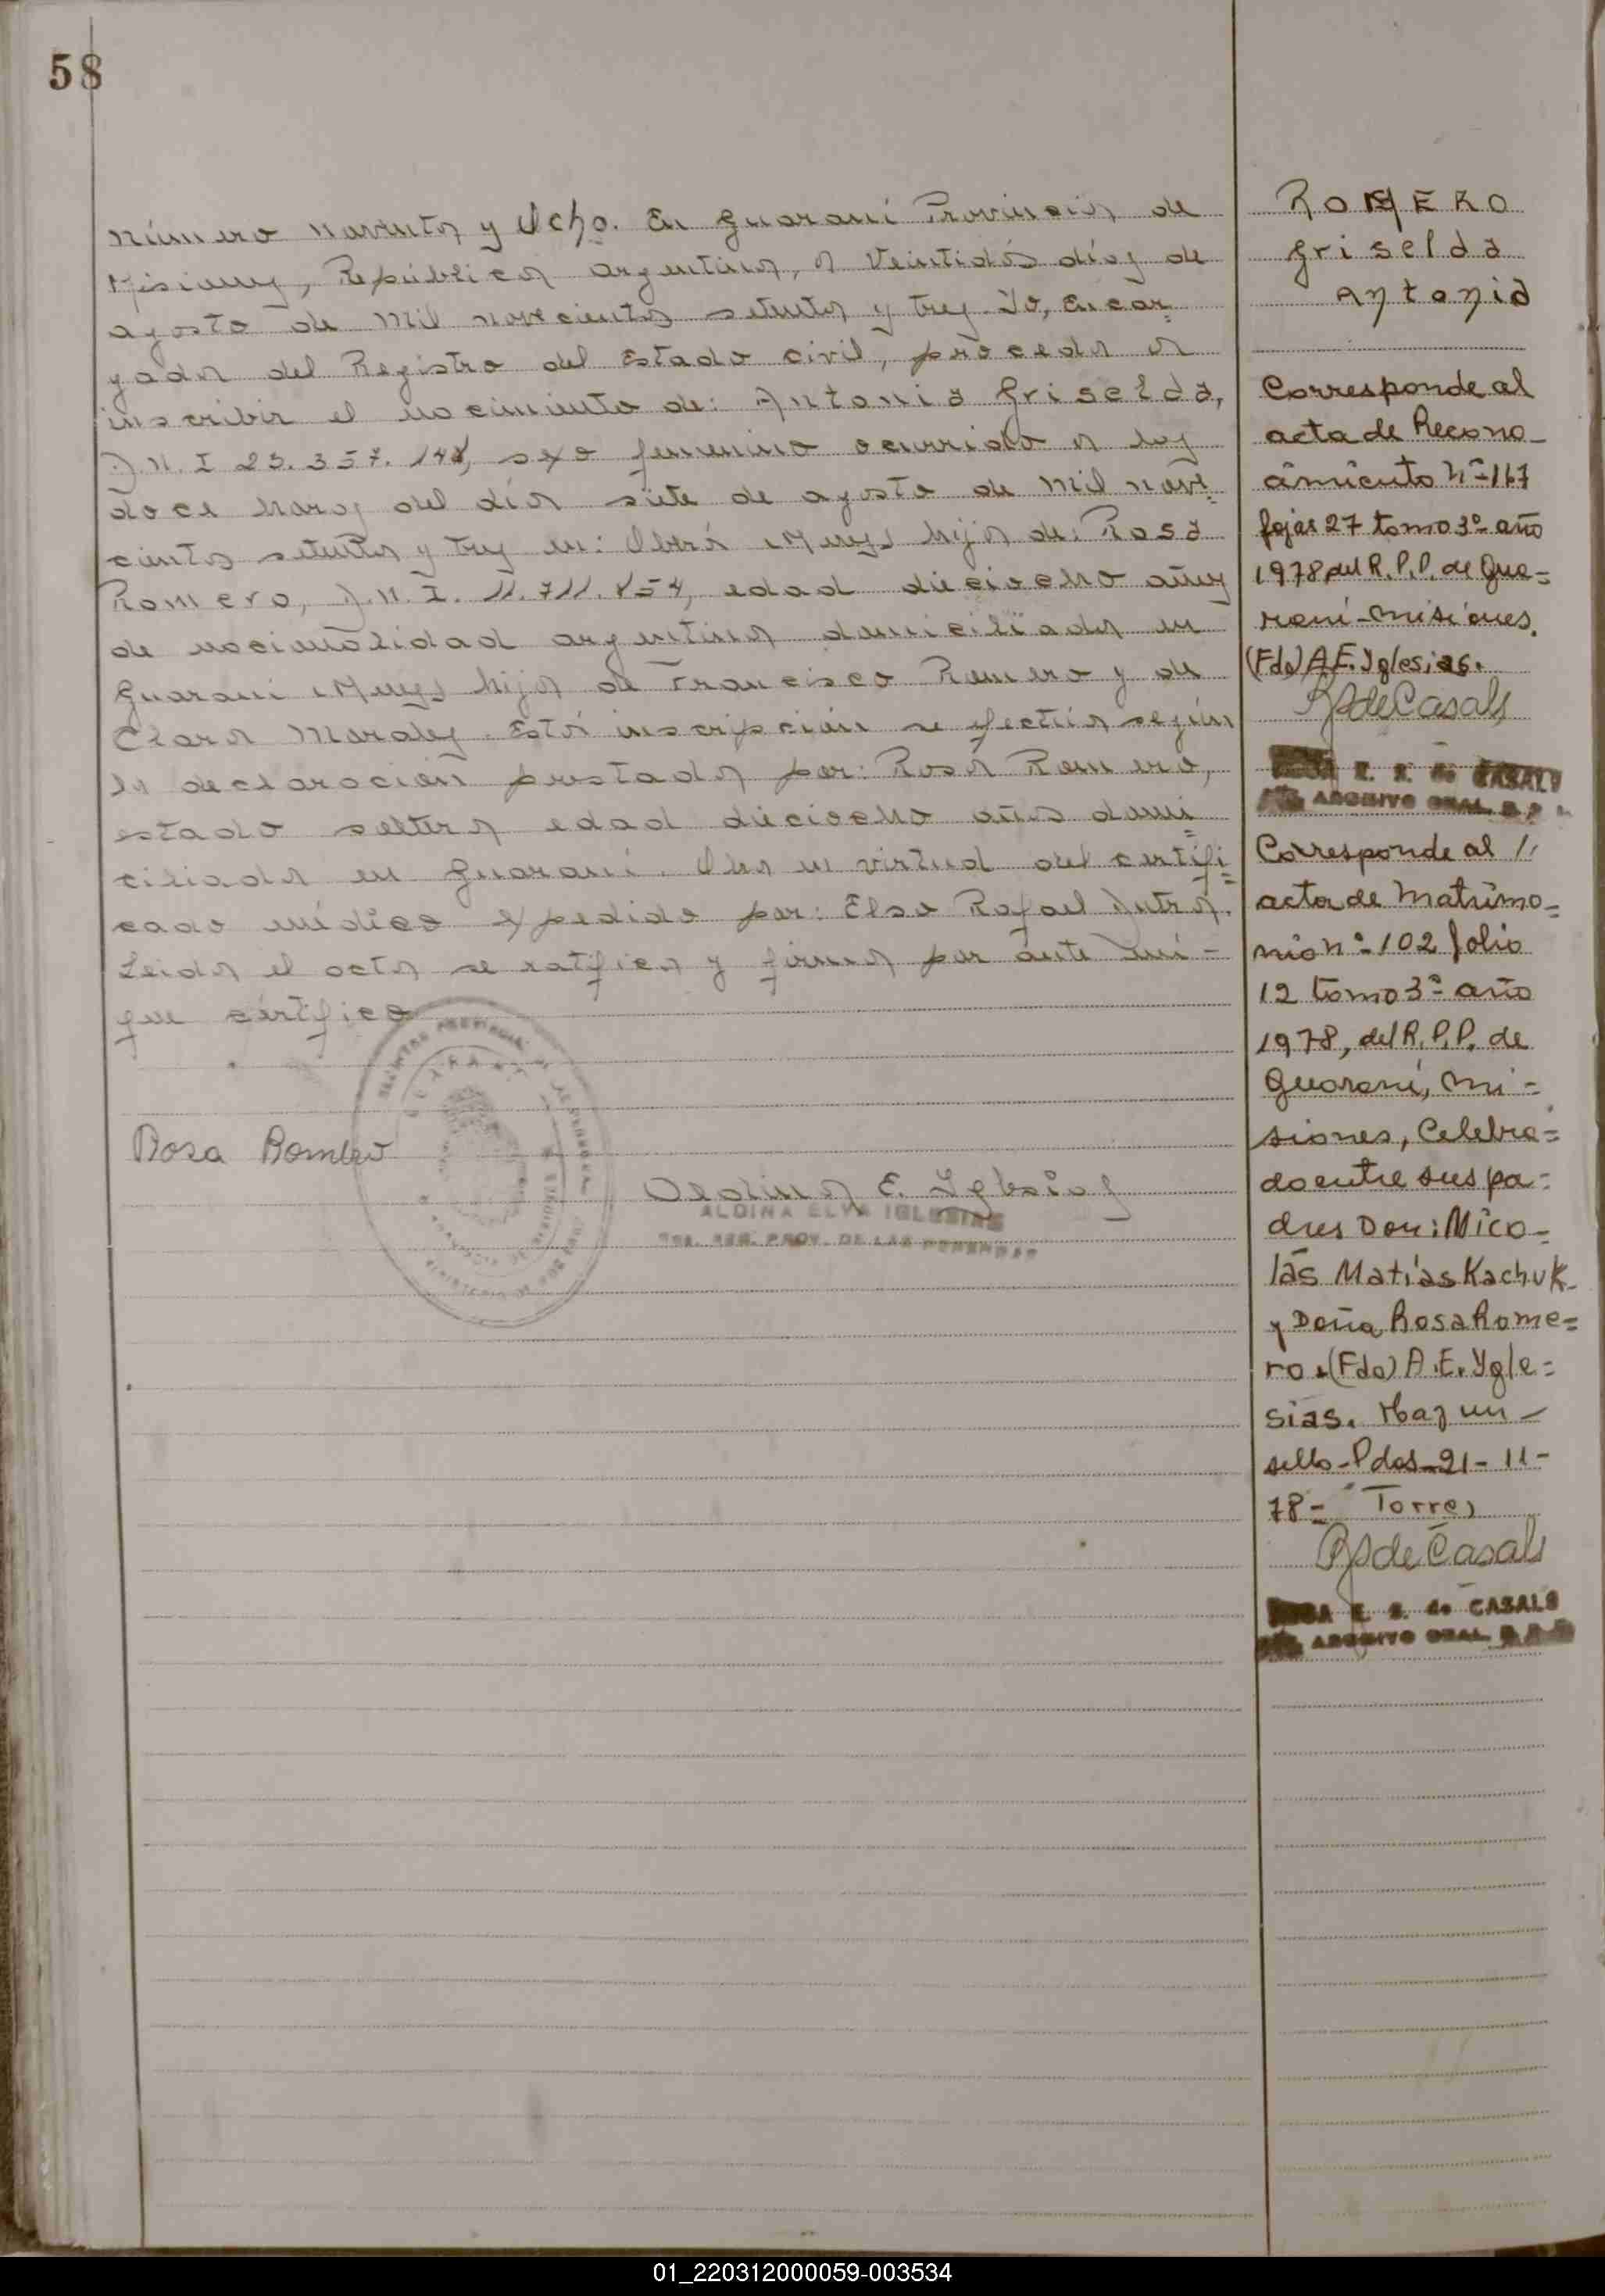 58
número noventa y Ocho. En Guaraní Provincia de
Misiones, República argentina, a Veintidós días de
agosto de Mil novecientos setenta y tres. Yo, Encar=
gada del Registro del Estado civil, procedo a
inscribir el nacimiento de: Antonia Griselda,
D.N.I 23.357.148, sexo femenino ocurrido a las
doce horas del día siete de agosto de Mil nove=
cientos setenta y tres en: Oberá (Mnes) hija de: Rosa
Romero, D.N.I. 11.711.854, edad dieciocho años
de nacionalidad argentina domiciliada en
Guaraní (Mnes) hija de Francisco Romero y de
Clara Morales. Esta inscripción se efectúa según
la declaración prestada por: Rosa Romero,
estado soltera edad dieciocho años domi=
ciliada en Guaraní. Obra en virtud del certifi=
cado médico expedido por: Elso Rafael Dutra.
Leida el acta se ratifica y firma por ante mi-
que certifico
Rosa Romero
Aldina E. Iglesias
ALDINA ELVA IGLESIAS
REG. PROV. DE LAS PERSONAS
ROMERO
Griselda
Antonia
Corresponde al
acta de Recono-
cimiento Nº 167
fojas 27 tomo 3º año
1978 del R.P.P. de Gua=
raní-Misiones.
(Fdo) A.E. Yglesias.
RSdeCasals
E. S. de CASALS
ARCHIVO GRAL. R.P.
Corresponde al //
acta de Matrimo=
nio nº 102 folio
12 tomo 3º año
1978, del R.P.P. de
Guaraní, Mi=
siones, Celebra=
do entre sus pa=
dres Don: Nico=
lás Matías Kachuk
y Doña Rosa Rome=
ro. (Fdo) A.E. Ygle=
sias. Hay un -
sello-Pdas-21-11-
78= Torres
RSdeCasals
ROSA E. S. de CASALS
ARCHIVO GRAL. R.P.
01_220312000059-003534